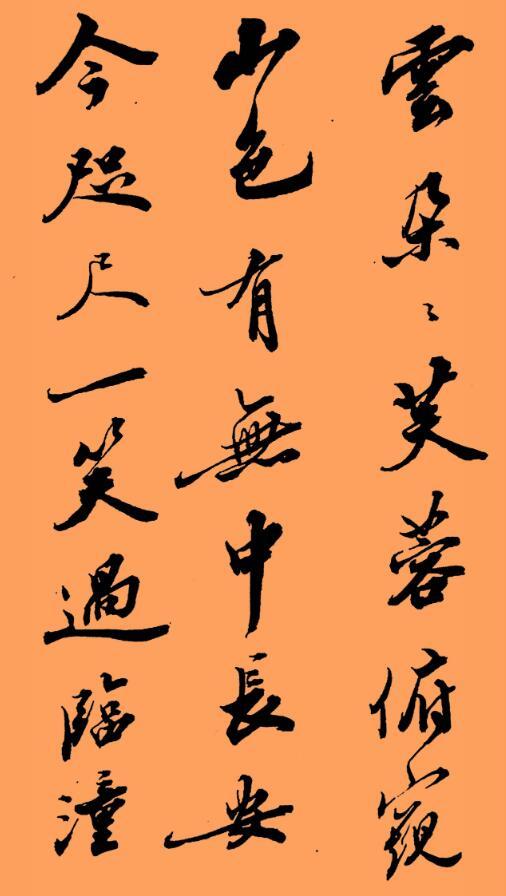 雲朵〻芙蓉俯窺
山色有無中長安
今咫尺一笑過臨潼